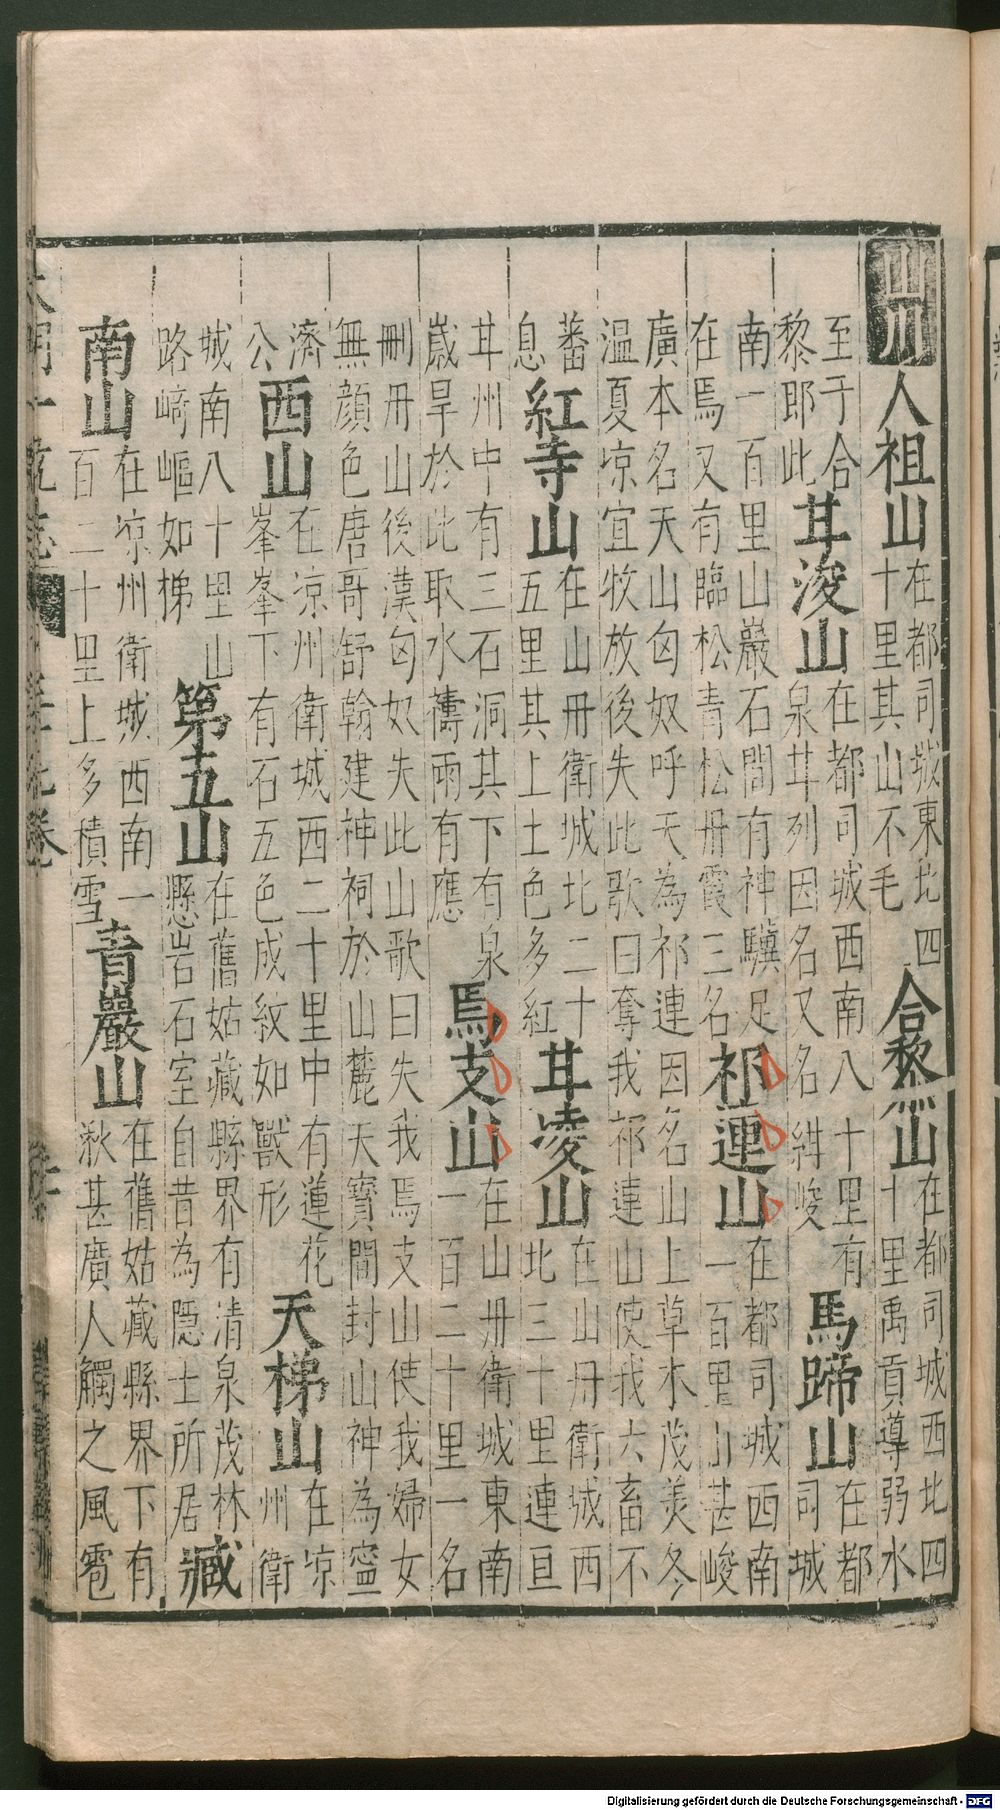 山川
人祖山
在都司城東北四
十里其山不毛
合黎山
在都司城西北四
十里禹貢導弱水
至于合
黎即此
甘浚山
在都司城西南八十里有
泉甘列因名又名紺峻
馬蹄山
在都
司城
南一百里山巖石間有神驥足
在焉又有臨松青松丹霞三名
祁連山
在都司城西南
一百里山甚峻
廣本名天山匈奴呼天為祁連因名山上草木茂美冬
溫夏凉宜牧放後失此歌曰奪我祁連山使我六畜不
蕃
息
紅寺山
在山丹衛城北二十
五里其上土色多紅
甘凌山
在山丹衛城西
北三十里連亘
甘州中有三石洞其下有泉
歲旱於此取水禱雨有應
焉支山
在山丹衛城東南
一百二十里一名
刪丹山後漢匈奴失此山歌曰失我焉支山使我婦女
無顏色唐哥舒翰建神祠於山麓天寶間封山神為寧
濟
公
西山
在涼州衛城西二十里中有蓮花
峯峯下有石五色成紋如獸形
天梯山
在凉
州衛
城南八十里山
路﨑嶇如梯
第五山
在舊姑藏縣界有清泉茂林
懸岩石室自昔為隱士所居
臧
南山
在凉州衛城西南一
百二十里上多積雪
青巖山
在舊姑藏縣界下有
湫甚廣人觸之風雹
大明一統志
Digitalisierung gefördert durch die Deutsche Forschungsgemeinschaft - DFG